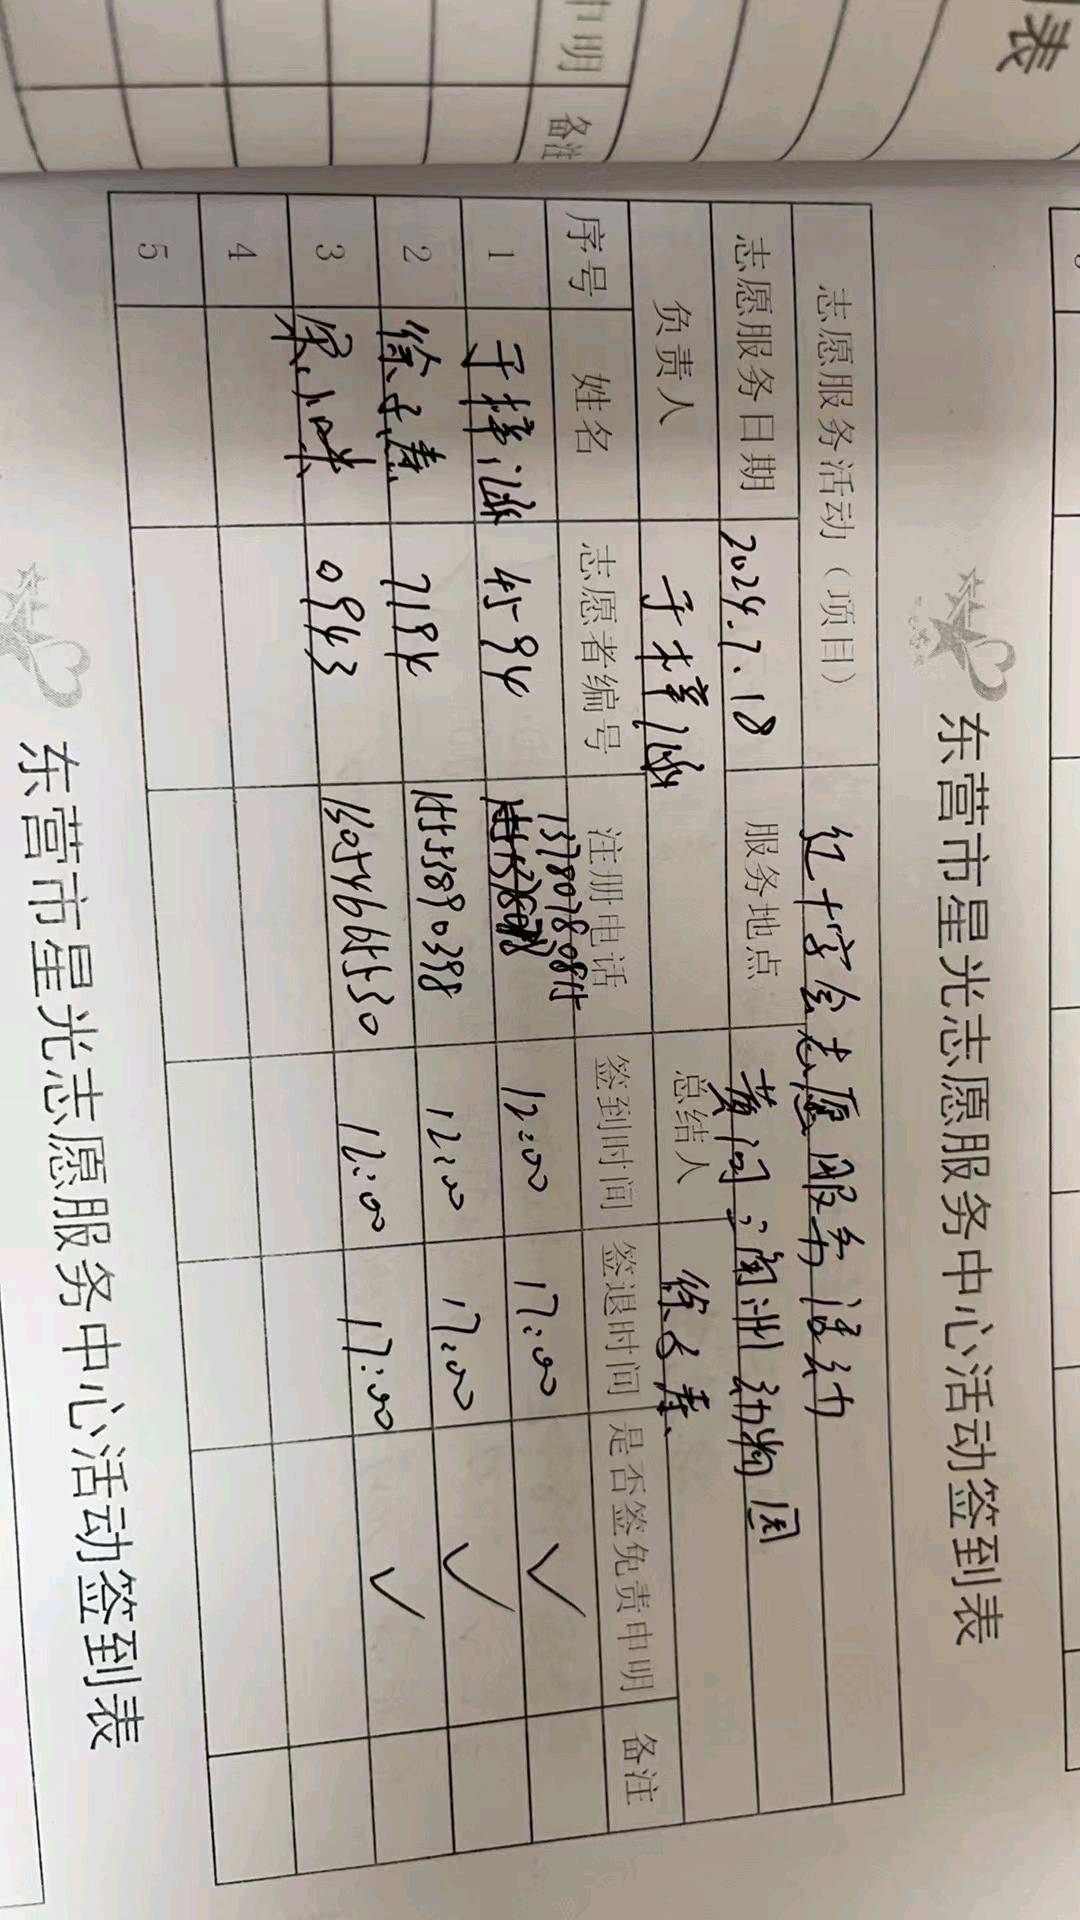 表
申明 备注
东营市星光志愿服务中心活动签到表
志愿服务活动（项目） 红十字会志愿服务活动
志愿服务日期 2024.7.18 服务地点 黄河三角洲动物园
负责人 于梓涵 总结人 徐子寿
序号 姓名 志愿者编号 注册电话 签到时间 签退时间 是否签免责申明 备注
1 于梓涵 4594 12:00 17:00 ✓
2 徐子寿 7194 12:00 17:00 ✓
3 0943 12:00 17:00 ✓
4
5
东营市星光志愿服务中心活动签到表